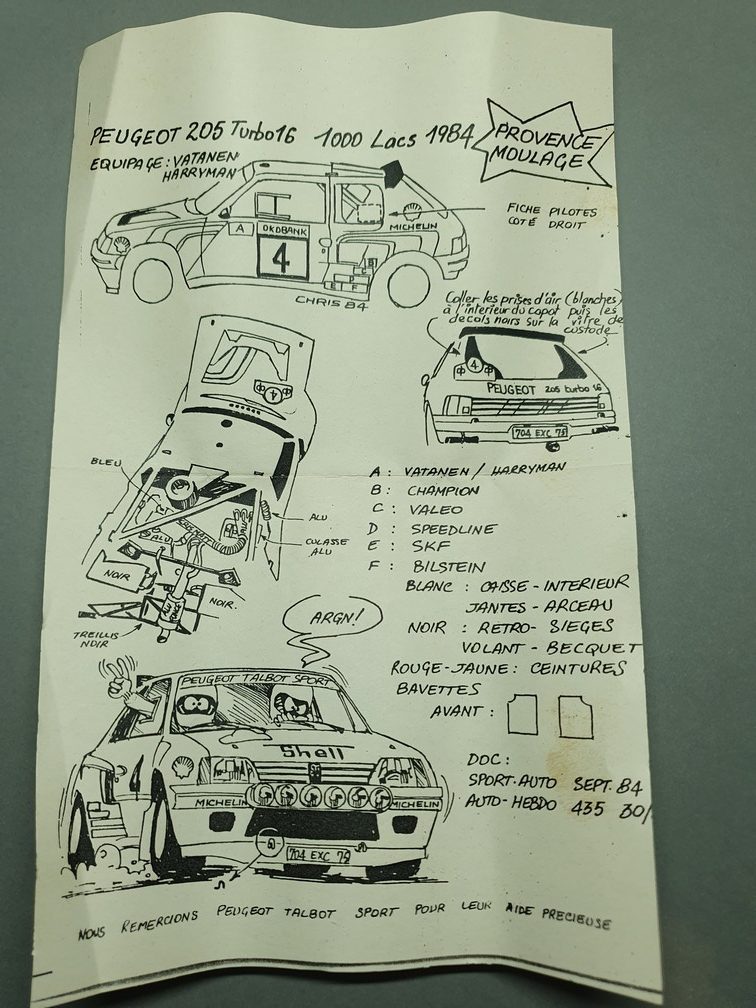 PEUGEOT 205 Turbo16 1000 Lacs 1984
PROVENCE
MOULAGE
EQUIPAGE : VATANEN
HARRYMAN
FICHE PILOTES
COTÉ DROIT
A
OKOBANK
4
MICHELIN
B
C
D
E F
CHRIS 84
Coller les prises d'air (blanches)
à l'interieur du capot puis les
decals noirs sur la vitre de
custode
4
PEUGEOT 205 turbo 16
704 EXC 75
4
BLEU
ALU
ALU
CULASSE
ALU
NOIR
NOIR.
TREILLIS
NOIR
A : VATANEN / HARRYMAN
B : CHAMPION
C : VALEO
D : SPEEDLINE
E : SKF
F : BILSTEIN
BLANC : CAISSE - INTERIEUR
JANTES - ARCEAU
NOIR : RETRO - SIEGES
VOLANT - BECQUET
ROUGE-JAUNE : CEINTURES
BAVETTES
AVANT :
DOC :
SPORT-AUTO SEPT. 84
AUTO-HEBDO 435 30/
ARGN!
PEUGEOT TALBOT SPORT
Shell
4
MICHELIN
MICHELIN
704 EXC 75
NOUS REMERCIONS PEUGEOT TALBOT SPORT POUR LEUR AIDE PRECIEUSE